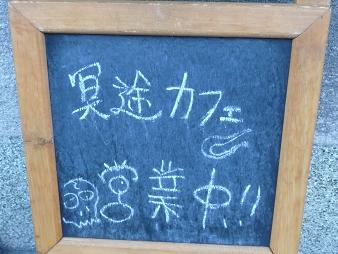 冥途カフェ
営業中!!